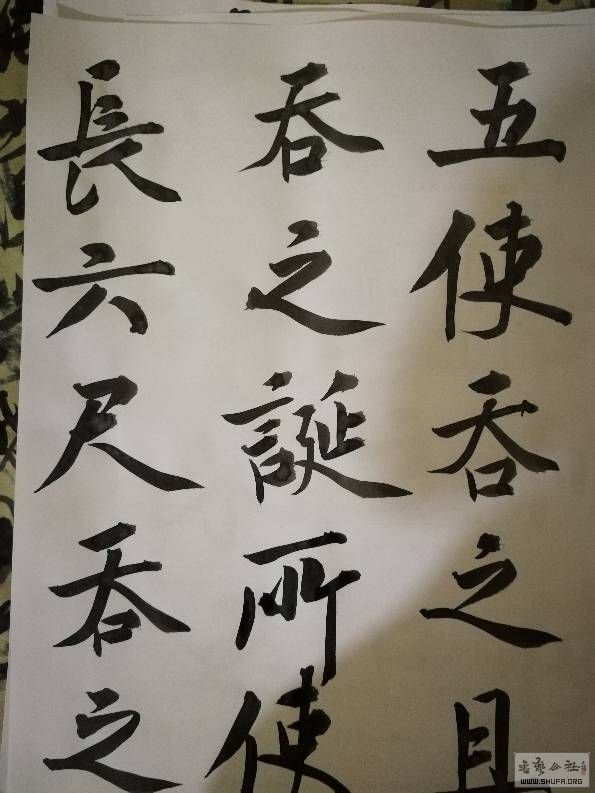 五使吞之
吞之誕所使
長六尺吞之
书艺公社
WWW.SHUFA.ORG